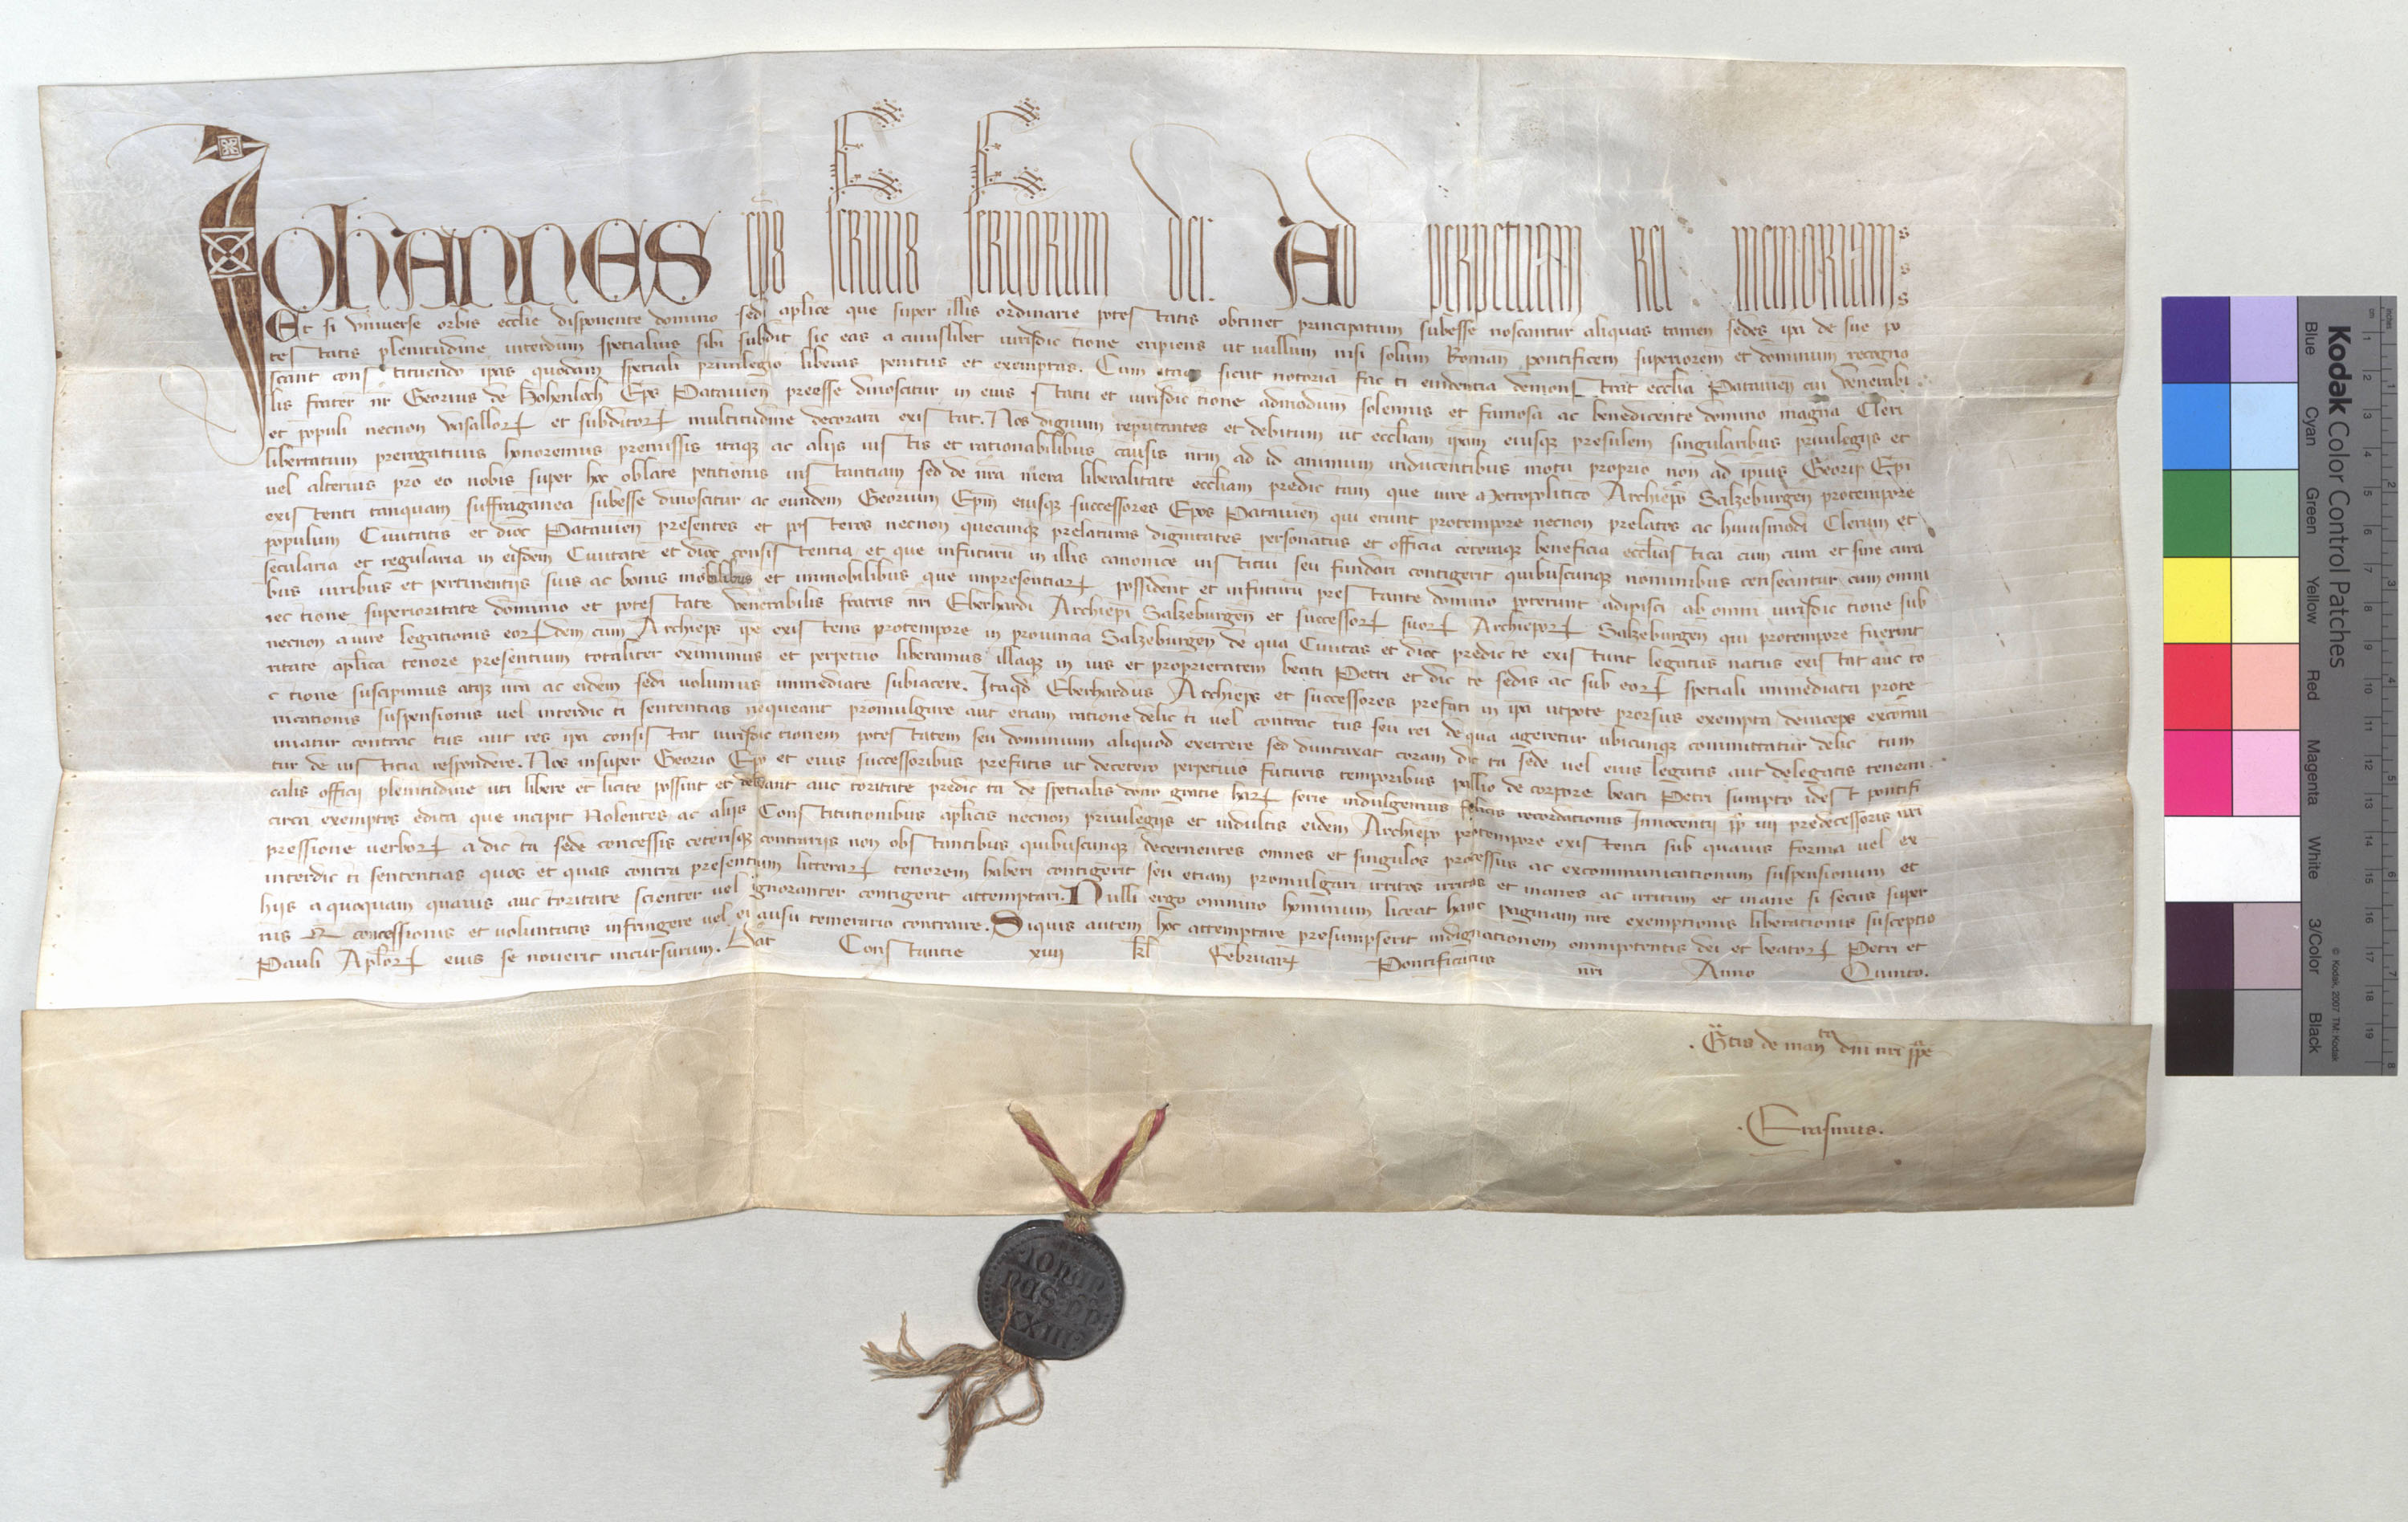 Johannes ep̄s seruus seruorum dei. Ad perpetuam rei memoriam
Et si vniuerse orbis eccl̄ie disponente domino sedi apl̄ice que super illis ordinarie potestatis obtinet principatum subesse noscantur aliquas tamen sedes ip̄a de sue po
testatis plenitudine interdum specialius sibi subdit sic eas a cuiuslibet iurisdictione eripiens ut nullum nisi solum Roman̄ pontificem superiorem et dominum recogno
scant constituendo ip̄as quodam speciali priuilegio liberas penitus et exemptas. Cum itaq sicut notoria facti euidentia demonstrat eccl̄ia Patauien̄ cui venerabi
lis frater nr̄ Georius de Hohenloch Ep̄s Patauien̄ preesse dinoscitur in eius statu et iurisdictione admodum solennis et famosa ac benedicente domino magna Cleri
et populi necnon vasalloꝝ et subditoꝝ multitudine decorata existat. Nos dignum reputantes et debitum ut eccl̄iam ip̄am eiusq̨ presulem singularibus priuilegijs et
libertatum prerogatiuis honoremus premissis itaq̨ ac alijs iustis et rationabilibus causis nr̄m ad id animum inducentibus motu proprio non ad ip̄ius Georij Ep̄i
uel alterius pro eo nobis super hoc oblate petitionis instantiam sed de nr̄a mera liberalitate eccl̄iam predictam que iure Metropolitico Archiep̄o Salzeburgen̄ protempore
existenti tanquam suffraganea subesse dinoscitur ac eundem Georium Ep̄m eiusq̨ successores Ep̄os Patauien̄ qui erunt protempore necnon prelatos ac huiusmodi Clerum et
populum Ciuitatis et dioc̄ Patauien̄ presentes et posteros necnon quecunq̨ prelaturas dignitates personatus et officia ceteraq̨ beneficia eccl̄iastica cum cura et sine cura
secularia et regularia in eisdem Ciuitate et dioc̄ consistentia et que infuturū in illis canonice institui seu fundari contigerit quibuscunq̨ nominibus censeantur cum omni
bus iuribus et pertinentijs suis ac bonis mobilibus et immobilibus que impresentiaꝝ possident et infuturū prestante domino poterunt adipisci ab omni iurisdictione sub
iectione superioritate dominio et potestate venerabilis fratris nr̄i Eberhardi Archiep̄i Salzeburgen̄ et successoꝝ suoꝝ Archiep̄oꝝ Salzeburgen̄ qui protempore fuerint
necnon a iure legationis eoꝝdem cum Archiep̄s ip̄e existens protempore in prouincia Salzeburgen̄ de qua Ciuitas et dioc̄ predicte existunt legatus natus existat aucto
ritate apl̄ica tenore presentium totaliter eximimus et perpetuo liberamus illaq̨ in ius et proprietatem beati Petri et dicte sedis ac sub eoꝝ speciali immediata prote
ctione suscipimus atq̨ nr̄a ac eidem sedi uolumus immediate subiacere. Itaqd̄ Eberhardus Archiep̄s et successores prefati in ip̄a utpote prorsus exempta deinceps excōmu
nicationis suspensionis uel interdicti sententias nequeant promulgare aut etiam ratione delicti uel contractus seu rei de qua ageretur ubicunq̨ committatur delictum
iniatur contractus aut res ip̄a consistat iurisdictionem potestatem seu dominium aliquod exercere sed duntaxat coram dicta sede uel eius legatis aut delegatis tenean
tur de iusticia respondere. Nos insuper Georio Ep̄o et eius successoribus prefatis ut decetero perpetuis futuris temporibus pallio de corpore beati Petri sumpto idest pontifi
calis officij plenitudine uti libere et licite possint et debeant auctoritate predicta de specialis dono gratie haꝝ serie indulgemus felicis recordationis Innocentij pp̄ iiij predecessoris nr̄i
circa exemptos edita que incipit Nolentes ac alijs Constitutionibus apl̄icis necnon priuilegijs et indultis eidem Archiep̄o protempore existenti sub quauis forma uel ex
pressione uerboꝝ a dicta sede concessis ceterisq̨ contrarijs non obstantibus quibuscunq̨ decernentes omnes et singulos processus ac excommunicationum suspensionum et
interdicti sententias quos et quas contra presentium litteraꝝ tenorem haberi contigerit seu etiam promulgari irritos irritas et inanes ac irritum et inane si secus super
hijs a quoquam quauis auctoritate scienter uel ignoranter contigerit attemptari. Nulli ergo omnino hominum liceat hanc paginam nr̄e exemptionis liberationis susceptio
nis concessionis et uoluntatis infringere uel ei ausu temerario contraire. Siquis autem hoc attemptare presumpserit indignationem omnipotentis dei et beatoꝝ Petri et
Pauli Apl̄oꝝ eius se nouerit incursurum. Dat̄ Constantie xiiij kl̄ Februarꝝ Pontificatus nr̄i Anno Quinto.
Gr̄tis de manto dn̄i nr̄i pp̄e
Erasmus.
IOHAN
NES·PP·
XXIII·
Kodak Color Control Patches
© Kodak, 2007 TM: Kodak
Blue Cyan Green Yellow Red Magenta White 3/Color Black
inches 1 2 3 4 5 6 7 8
cm 1 2 3 4 5 6 7 8 9 10 11 12 13 14 15 16 17 18 19